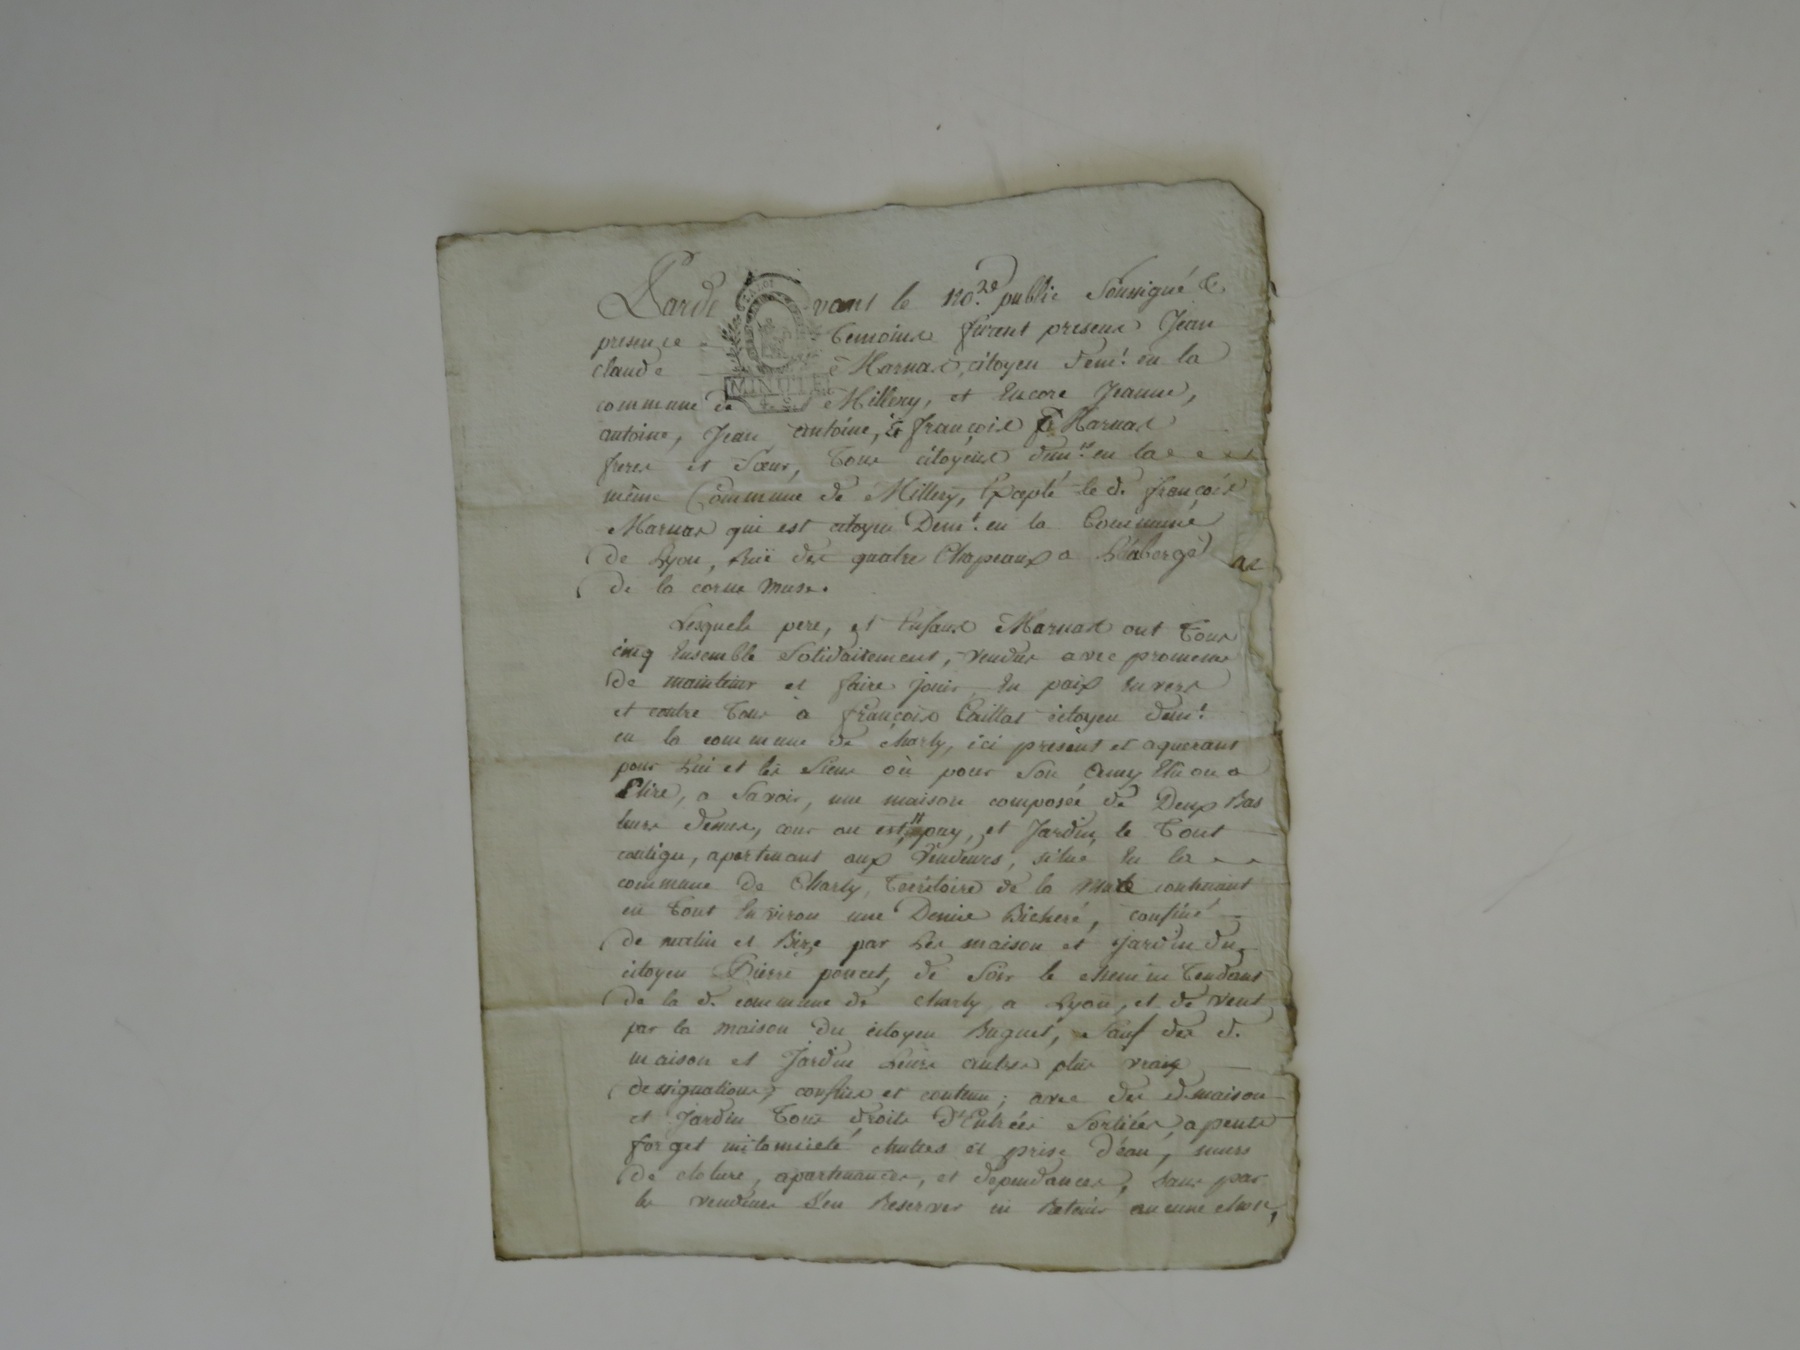 Parde vant le no.re public Soussigné &
presence temoins furent presens Jean
claude Marnas, citoyen dem.t en la
commune de Millery, et Encore Jeanne,
antoine, Jean antoine, & françois Marnas
freres et Sœur, Tous citoyens dem.ts en la
même Commune de Millery, Excepté le d. françois
Marnas qui est citoyen Dem.t en la Commune
de Lyon, Ruë des quatre Chapeaux a L'auberge
de la corne muse.
Lesquels pere, et Enfans Marnas ont Tous
cinq Ensemble Solidairement, vendus avec promesse
de maintenir et faire jouir En paix Envers
et contre Tous à françois Caillat citoyen dem.t
en la commune de charly, ici present et aquerant
pour Lui et les Siens où pour Son Amy Elu ou a
Elire, a Savoir, une maison composée de Deux Bas
leurs dessus, cour ou est puy, et Jardin, le Tout
contigu, apartenant aux Vendeurs, situé En la
commune de Charly, Territoire de la contenant
en Tout Environ une Demie Bicheré, confiné
de matin et Bize par Les maison et jardin du
citoyen Pierre poncet, de Soir le chemin Tendant
de la d. commune de charly a Lyon, et de vent
par la maison du citoyen Buguet, Sauf des d.
maison et Jardin Leurs autres plus vraix
designations, confins et contenu; avec des d. maison
et Jardin Tous droits D'Entrées Sorties, apents
forget mitoieneté chuttes et prise d'éau, murs
de cloture, apartenances, et dependances, Sans par
les vendeurs S'en Reserver ni Retenir aucune chose,
LA LOI
MINUTE